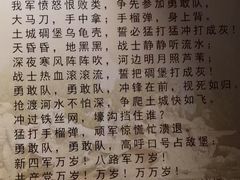 我军愤怒恨败类，争先参加勇敢队。
大马刀，手中拿；手榴弹，身上背。
土城碉堡乌龟壳，誓必猛打猛冲打成灰！
天昏昏，地黑黑，战士静静听流水；
深夜寒风阵阵吹，河边明月照芦苇；
战士热血滚滚流，誓把碉堡打成灰！
勇敢队，勇敢队，冲锋在前，视死如归。
抢渡河水不怕深，争爬土城快如飞。
冲过铁丝网，壕沟挡住谁？
猛打手榴弹，顽军惊慌忙溃退。
勇敢队，勇敢队，高呼口号占敌堡：
新四军万岁！八路军万岁！
共产党万岁！万岁！万万岁！